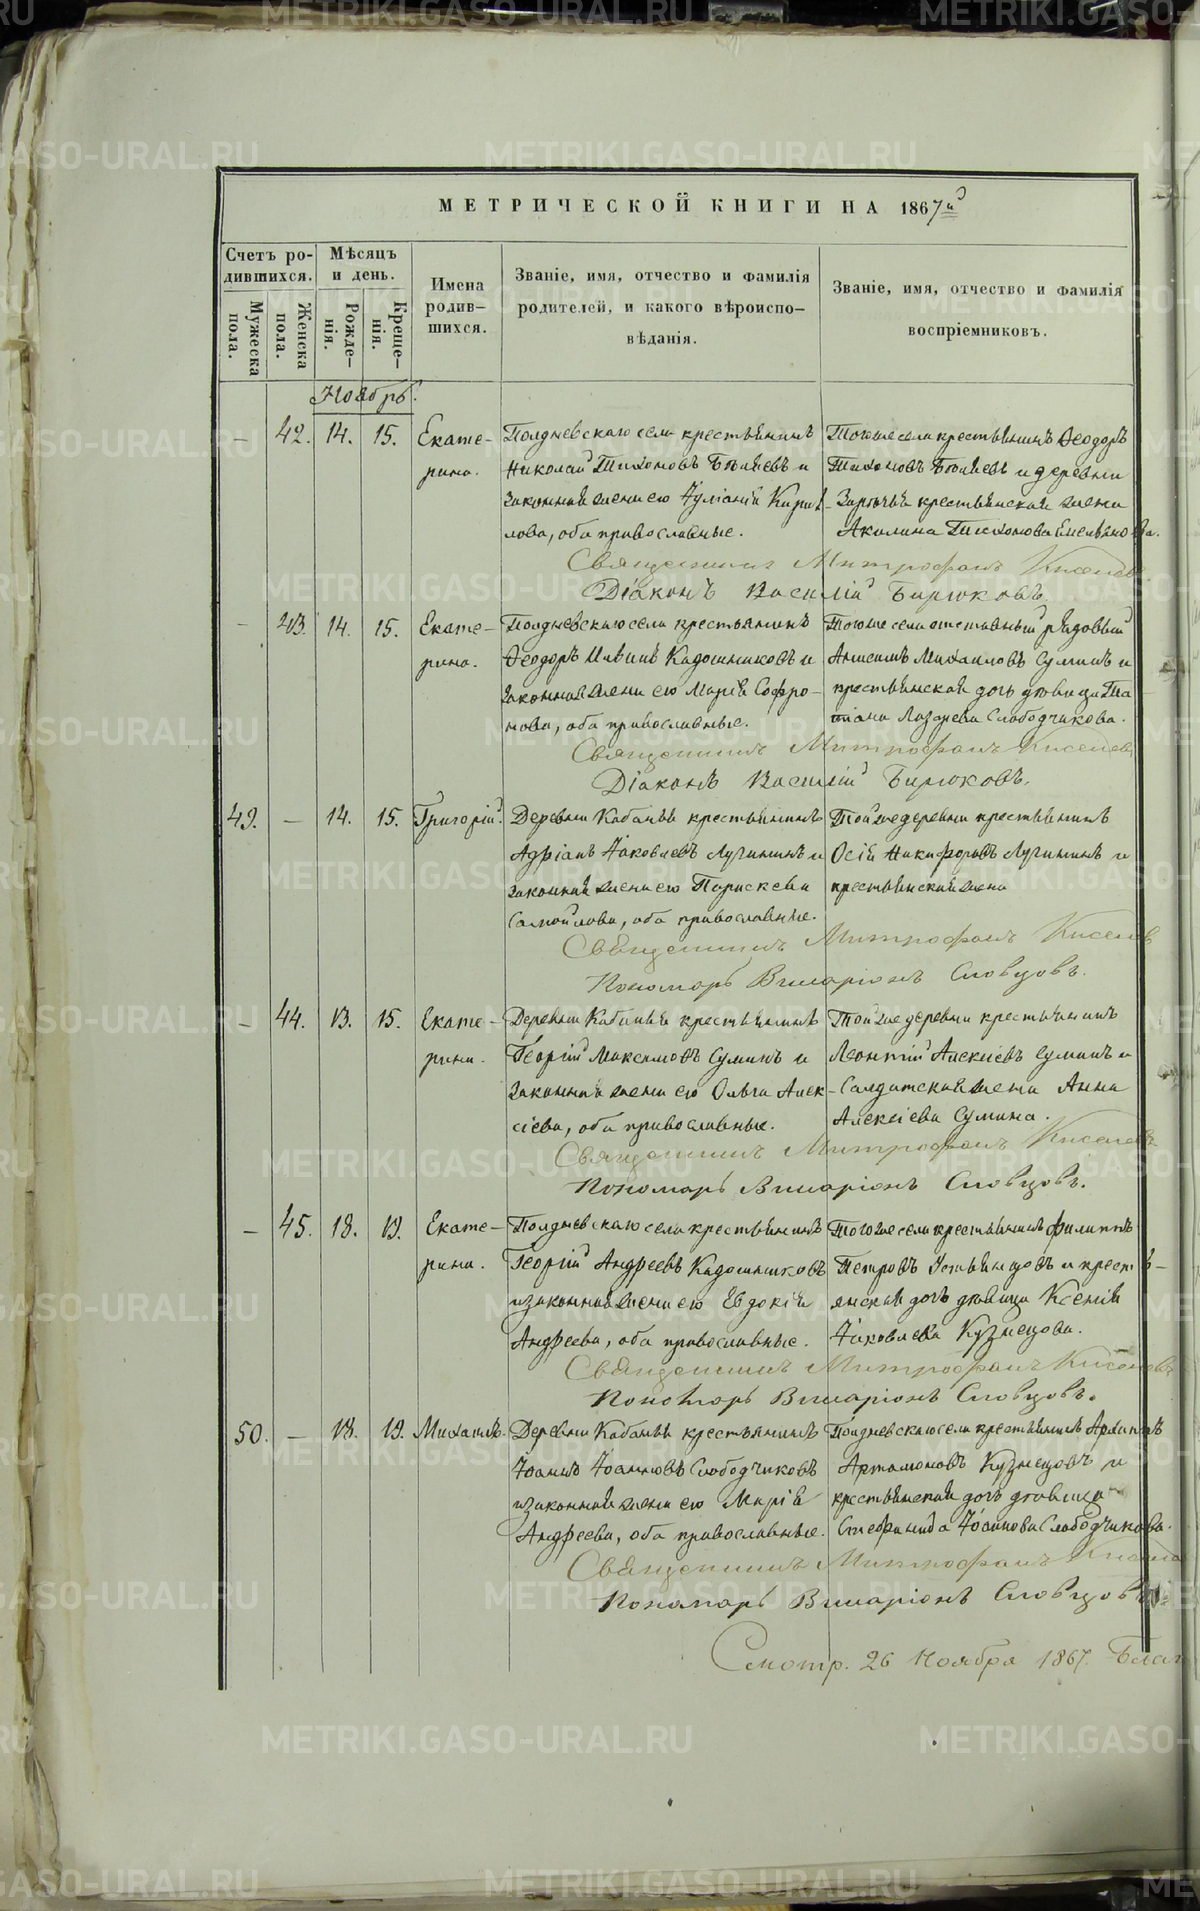 МЕТРИЧЕСКОЙ КНИГИ НА 1867й
Счетъ ро-
дившихся.
Мужеска пола.
Женска пола.
Мѣсяцъ
и день.
Рожде-
нія.
Креще-
нія.
Имена
родив-
шихся.
Званіе, имя, отчество и фамилія
родителей, и какого вѣроиспо-
вѣданія.
Званіе, имя, отчество и фамилія
воспріемниковъ.
Ноябрь.
— 42. 14. 15. Екате- Полдневскаго села крестьянинъ Тогоже села крестьянинъ Ѳеодоръ
рина. Николай Тихоновъ Бѣляевъ и Тихоновъ Бѣляевъ и деревни
законная жена его Іуліанія Кирил- крестьянская жена
лова, оба православные. Акилина Тихонова Емельянова.
Священникъ Митрофанъ Киселевъ
Діаконъ Василій Бирюковъ.
— 43. 14. 15. Екате- Полдневскаго села крестьянинъ Тогоже села отставный рядовый
рина. Ѳеодоръ Ильинъ Кадошниковъ и Анисимъ Михаиловъ Суминъ и
законная жена его Марія Софро- крестьянская дочь дѣвица Та
нова, оба православные. тіана Лазарева Слободчикова.
Священникъ Митрофанъ Киселевъ
Діаконъ Василій Бирюковъ.
49. — 14. 15. Григорій. Деревни Кабаньи крестьянинъ Тойже деревни крестьянинъ
Адріанъ Іаковлевъ Лучининъ и Осій Никифоровъ Лучининъ и
законная жена его Параскева крестьянская жена
Самойлова, оба православные.
Священникъ Митрофанъ Киселевъ
Пономарь Виларіонъ Словцовъ.
— 44. 13. 15. Екате- Деревни Кабаньи крестьянинъ Тойже деревни крестьянинъ
рина. Георгій Максимовъ Суминъ и Леонтій Алексіевъ Суминъ и
законная жена его Ольга Алек- Салдатская жена Анна
сіева, оба православные. Алексіева Сумина.
Священникъ Митрофанъ Киселевъ
Пономарь Виларіонъ Словцовъ.
— 45. 18. 19. Екате- Полдневскаго села крестьянинъ Тогоже села крестьянинъ Филиппъ
рина. Георгій Андреевъ Кадошниковъ Петровъ Устьянцовъ и кресть-
и законная жена его Евдокія янская дочь дѣвица Ксенія
Андреева, оба православные. Іаковлева Кузнецова.
Священникъ Митрофанъ Киселевъ
Пономарь Виларіонъ Словцовъ.
50. — 18. 19. Михаилъ. Деревни Кабаньи крестьянинъ Полдневскаго села крестьянинъ Архиппъ
Іоаннъ Іоанновъ Слободчиковъ Артамоновъ Кузнецовъ и
и законная жена его Марія крестьянская дочь дѣвица
Андреева, оба православные. Стефанида Іоаннова Слободчикова.
Священникъ Митрофанъ
Пономарь Виларіонъ Словцовъ.
Смотр. 26 Ноября 1867. Благ
METRIKI.GASO-URAL.RU